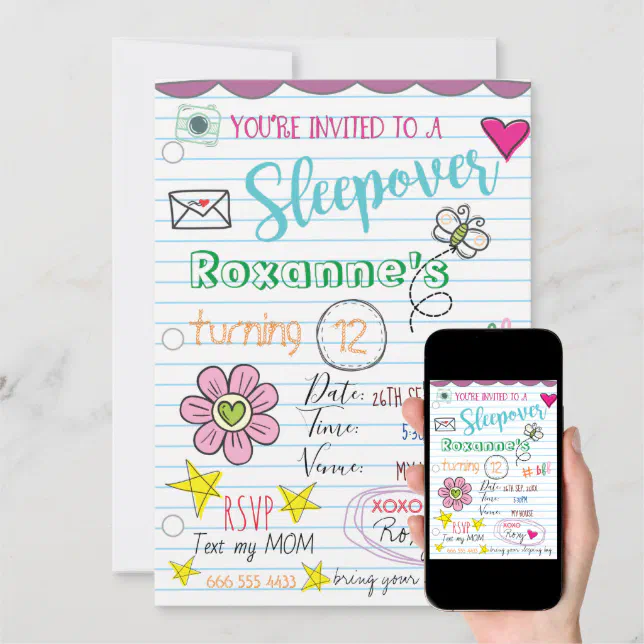 YOU'RE INVITED TO A
Sleepover
Roxanne's
turning 12
Date: 26TH SEP
Time: 5:30
Venue: MY
RSVP
XOXO
Text my MOM
666 555 4433
bring your
YOU'RE INVITED TO A
Sleepover
Roxanne's
turning 12 #bff
Date: 26TH SEP, 20XX
Time: 5:30PM
Venue: MY HOUSE
RSVP
XOXO
Text my MOM
Roxy
666 555 4433
bring your sleeping bag